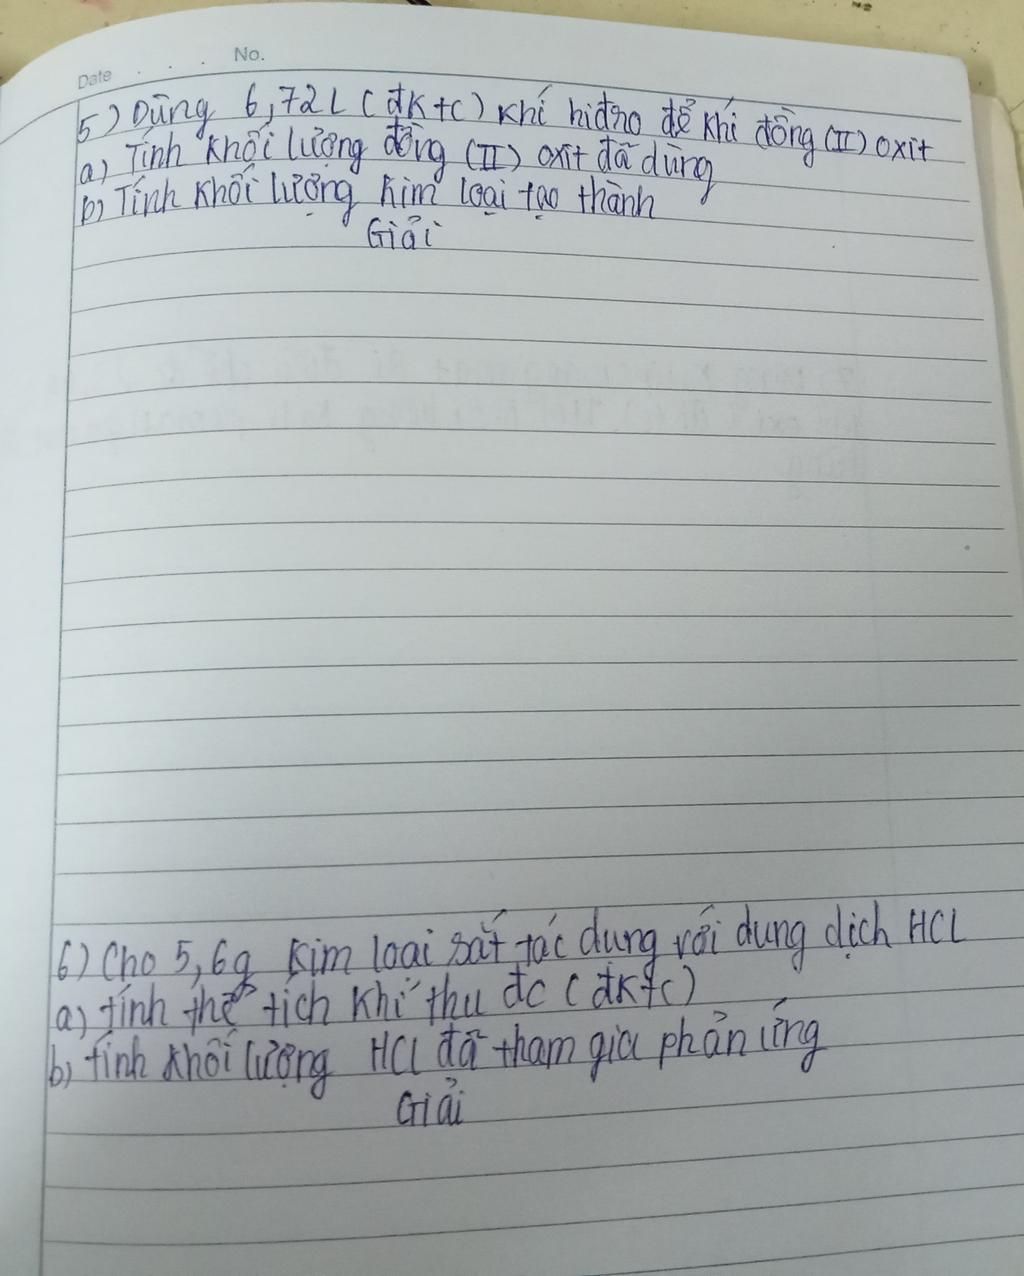 Date . . . No.
5) Dùng 6,72L (đK+C) khí hiđro để khí đồng (II) oxit
a) Tính khối lượng đồng (II) oxit đã dùng
b) Tính khối lượng kim loại tạo thành
Giải
6) Cho 5,6g kim loại sắt tác dụng với dung dịch HCL
a) tính thể tích khí thu đc (đktc)
b) tính khối lượng HCl đã tham gia phản ứng
Giải